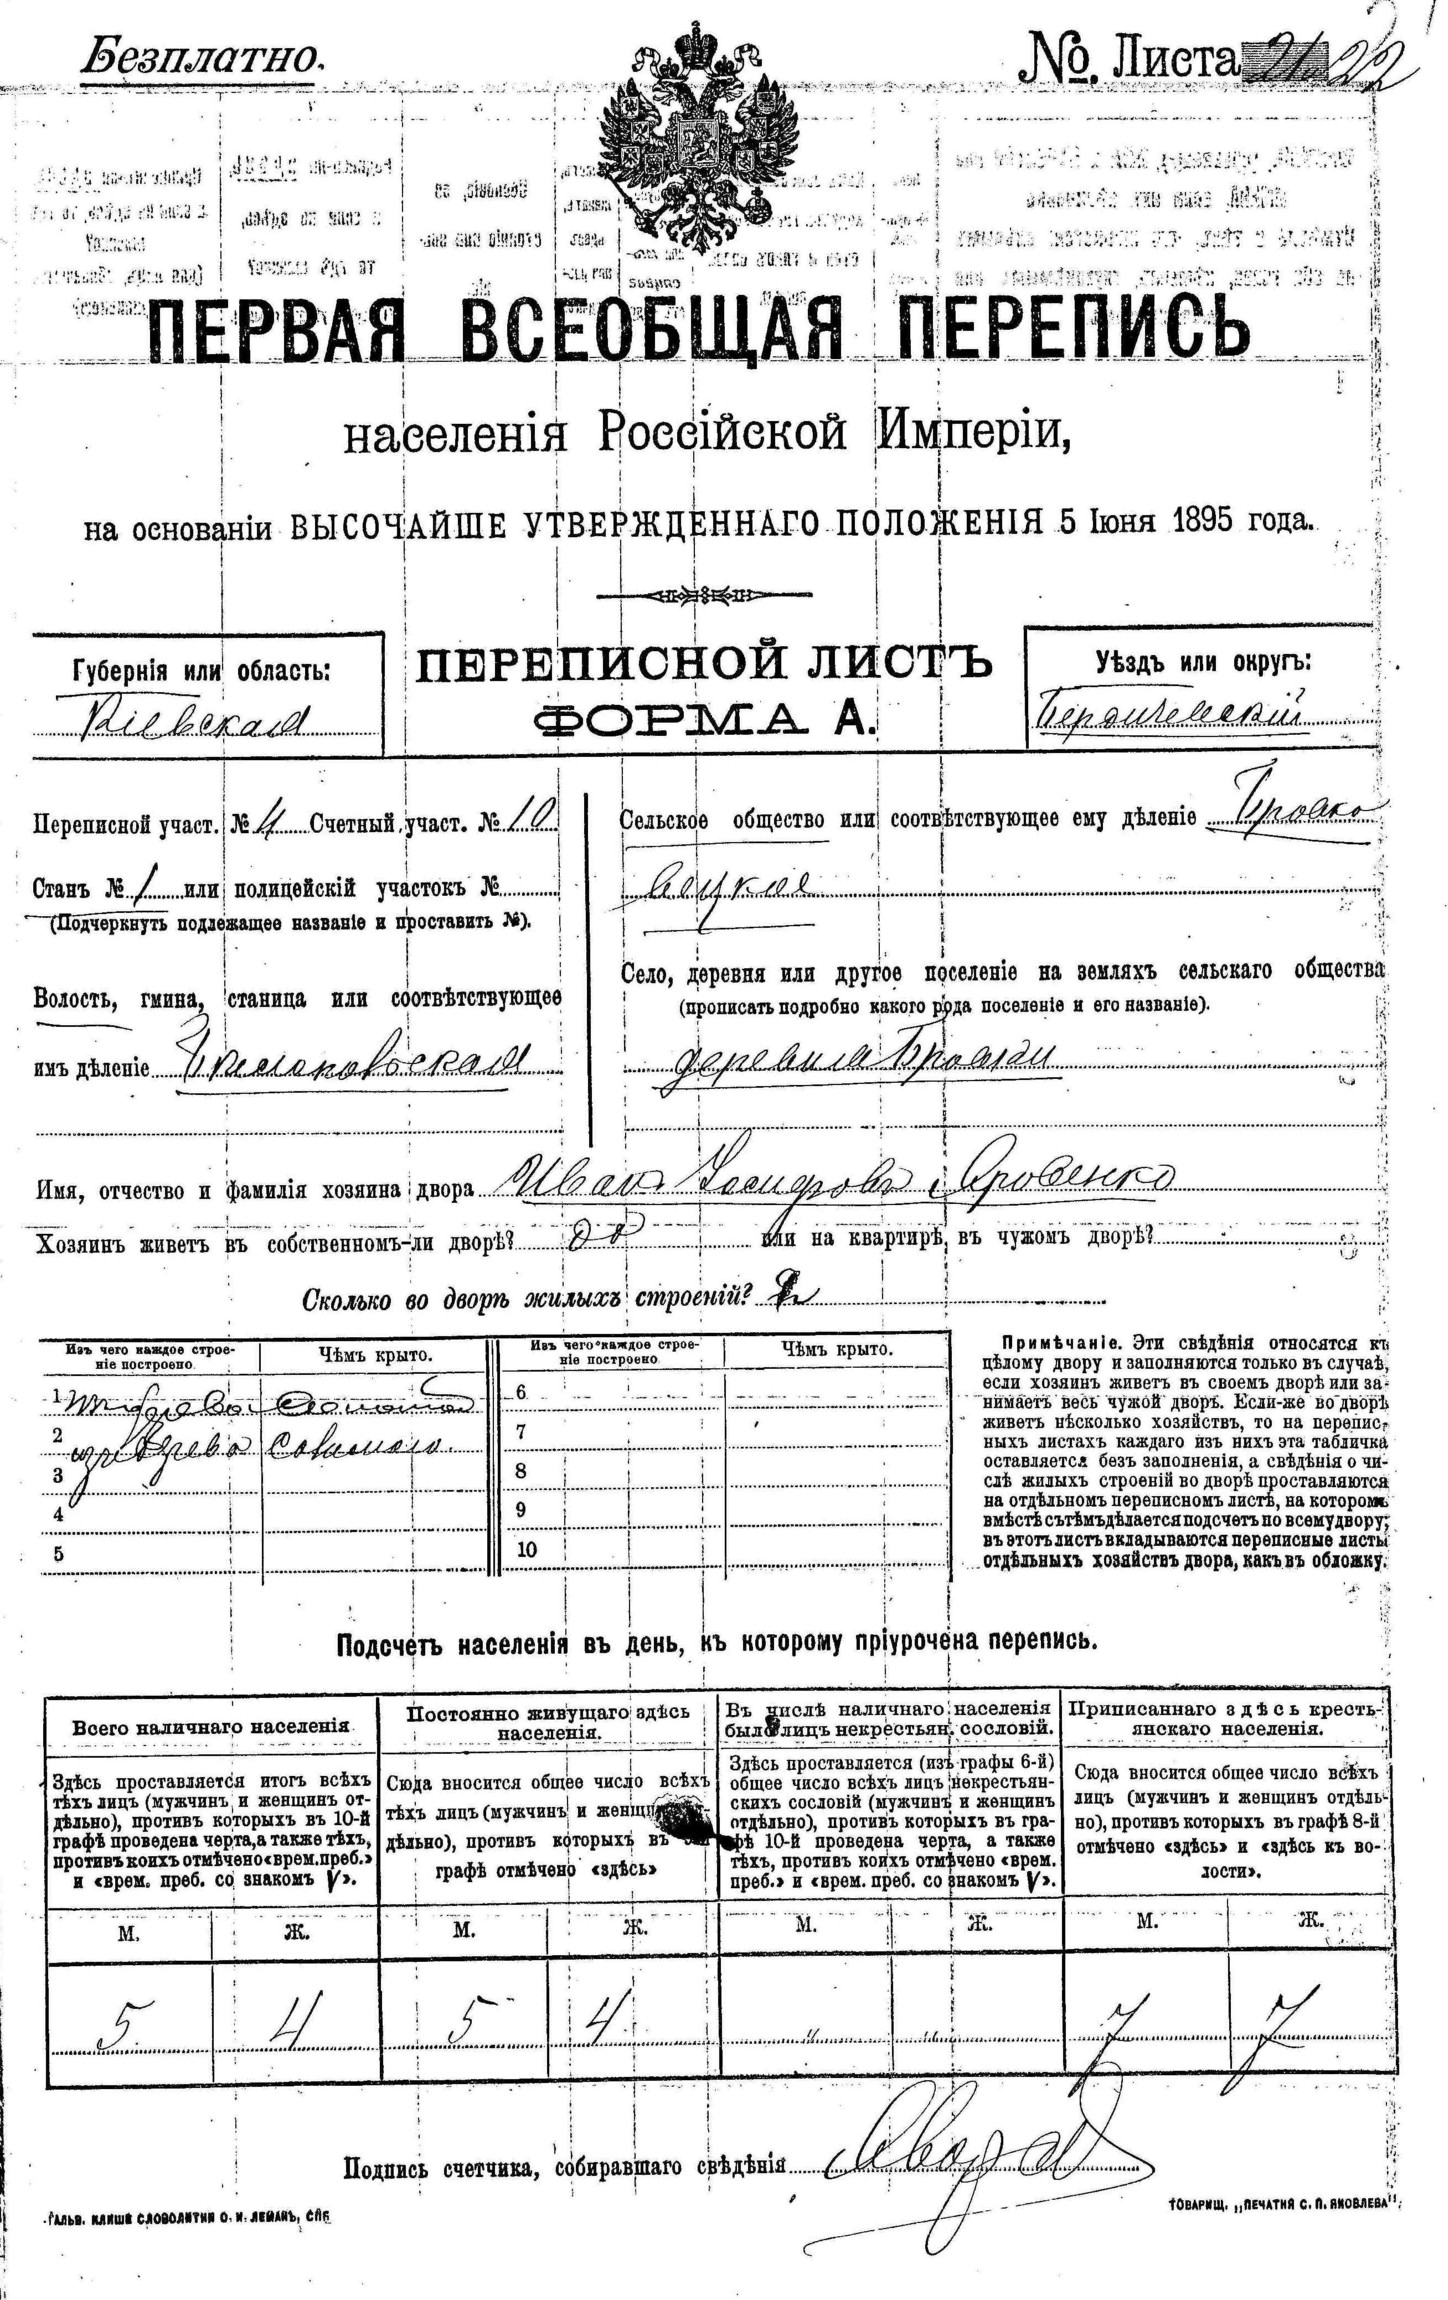 Безплатно.
№. Листа 22
ПЕРВАЯ ВСЕОБЩАЯ ПЕРЕПИСЬ
населенія Россійской Имперіи,
на основаніи ВЫСОЧАЙШЕ УТВЕРЖДЕННАГО ПОЛОЖЕНІЯ 5 Іюня 1895 года.
Губернія или область:
Кіевская
ПЕРЕПИСНОЙ ЛИСТЪ
ФОРМА А.
Уѣздъ или округъ:
Бердичевскій
Переписной участ. № 4 Счетный участ. № 10
Станъ № 1 или полицейскій участокъ №
(Подчеркнуть подлежащее названіе и проставить №).
Волость, гмина, станица или соотвѣтствующее
имъ дѣленіе
Сельское общество или соотвѣтствующее ему дѣленіе
Село, деревня или другое поселеніе на земляхъ сельскаго общества
(прописать подробно какого рода поселеніе и его названіе).
деревня
Имя, отчество и фамилія хозяина двора Иван Іосифовъ Яровенко
Хозяинъ живетъ въ собственномъ-ли дворѣ? да или на квартирѣ, въ чужомъ дворѣ?
Сколько во дворѣ жилыхъ строеній?
Изъ чего каждое строе-
ніе построено
Чѣмъ крыто.
1
2 изъ дерева соломою
3
4
5
Изъ чего каждое строе-
ніе построено
Чѣмъ крыто.
6
7
8
9
10
Примѣчаніе. Эти свѣдѣнія относятся къ
цѣлому двору и заполняются только въ случаѣ,
если хозяин живетъ въ своемъ дворѣ или за-
нимаетъ весь чужой дворъ. Если-же во дворѣ
живетъ нѣсколько хозяйствъ, то на перепис-
ныхъ листахъ каждаго изъ нихъ эта табличка
оставляется безъ заполненія, а свѣдѣнія о чи-
слѣ жилыхъ строеній во дворѣ проставляются
на отдѣльномъ переписномъ листѣ, на которомъ
вмѣстѣ съ тѣмъ дѣлается подсчетъ по всему двору;
въ этотъ листъ вкладываются переписные листы
отдѣльныхъ хозяйствъ двора, какъ въ обложку.
Подсчетъ населенія въ день, къ которому пріурочена перепись.
Всего наличнаго населенія
Здѣсь проставляется итогъ всѣхъ
тѣхъ лицъ (мужчинъ и женщинъ от-
дѣльно), противъ которыхъ въ 10-й
графѣ проведена черта, а также тѣхъ,
противъ коихъ отмѣчено «врем. преб.»
и «врем. преб. со знакомъ V».
М. Ж.
5 4
Постоянно живущаго здѣсь
населенія.
Сюда вносится общее число всѣхъ
тѣхъ лицъ (мужчинъ и женщинъ от-
дѣльно), противъ которыхъ въ
графѣ отмѣчено «здѣсь»
М. Ж.
5 4
Въ числѣ наличнаго населенія
было лицъ некрестьян. сословій.
Здѣсь проставляется (изъ графы 6-й)
общее число всѣхъ лицъ некрестьян-
скихъ сословій (мужчинъ и женщинъ
отдѣльно), противъ которыхъ въ гра-
фѣ 10-й проведена черта, а также
тѣхъ, противъ коихъ отмѣчено «врем.
преб.» и «врем. преб. со знакомъ V».
М. Ж.
" "
Приписаннаго здѣсь кресть-
янскаго населенія.
Сюда вносится общее число всѣхъ
лицъ (мужчинъ и женщинъ отдѣль-
но), противъ которыхъ въ графѣ 8-й
отмѣчено «здѣсь» и «здѣсь къ во-
лости».
М. Ж.
7 7
Подпись счетчика, собиравшаго свѣдѣнія
Гальв. клише словолитни О. И. Леманъ, СПб
Товарищ. „Печатня С. П. Яковлева".